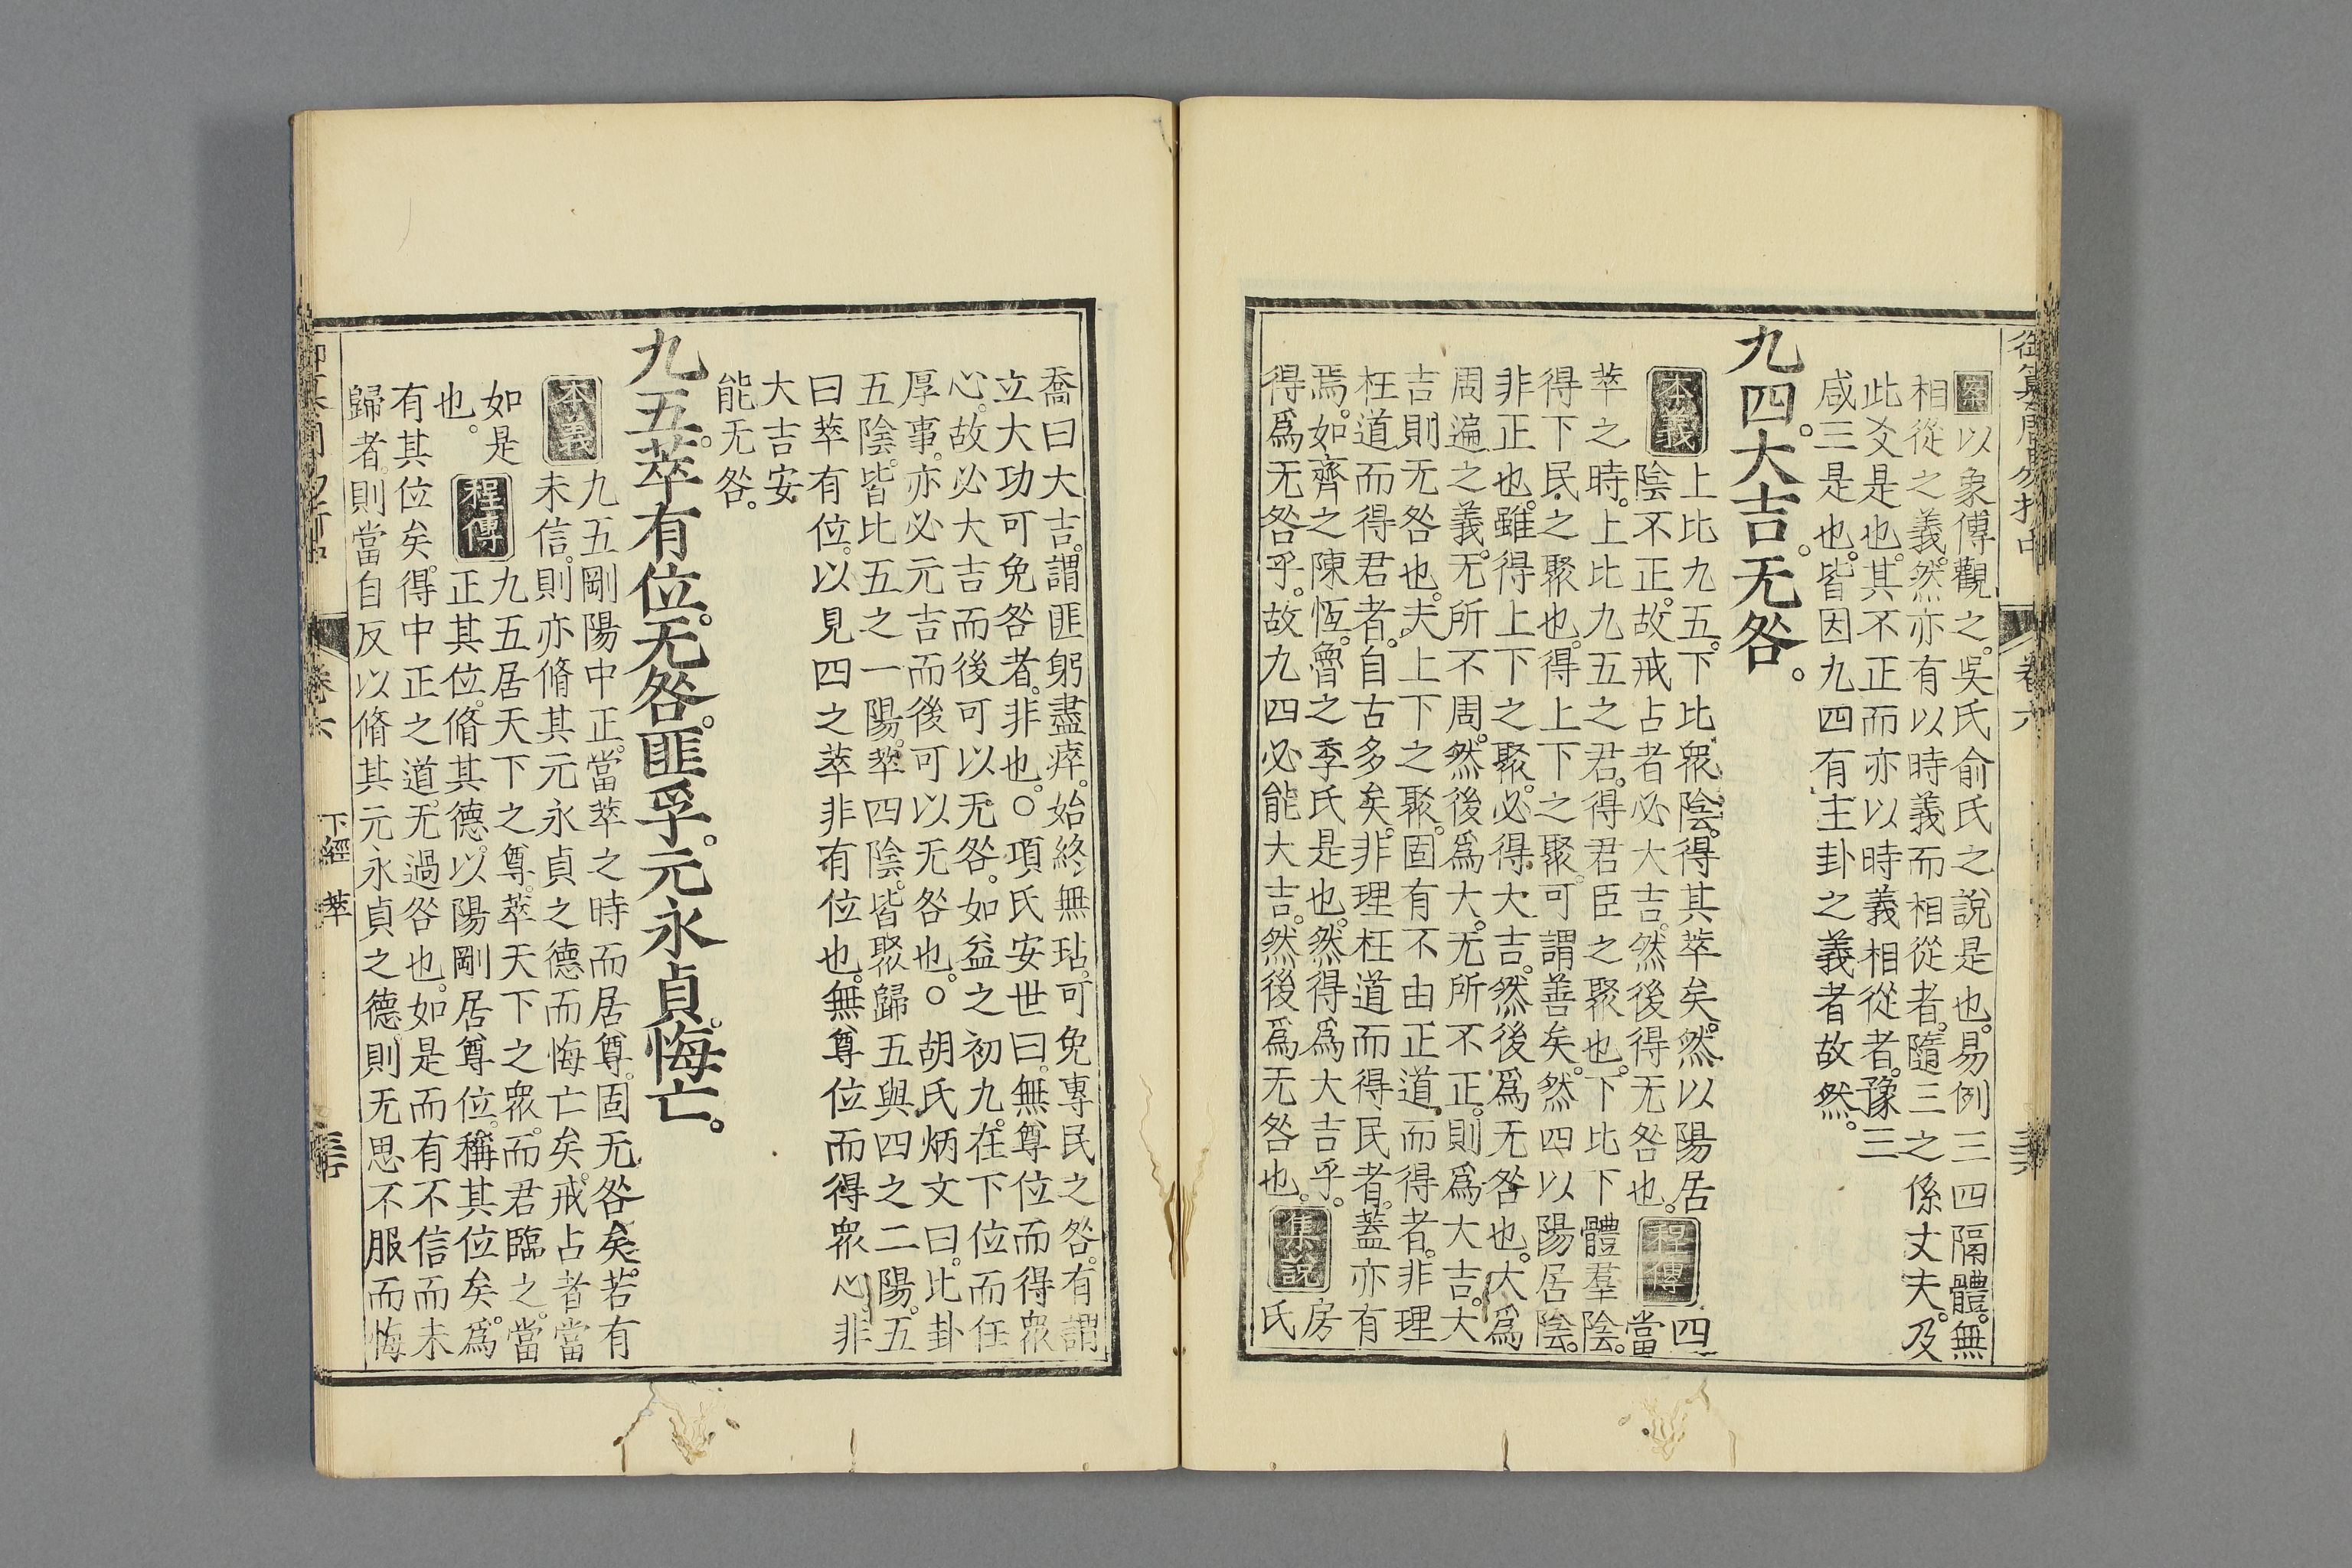 御纂周易折中 卷六
案以象傳觀之。吳氏俞氏之說是也。易例三四隔體。無
相從之義。然亦有以時義而相從者。隨三之係丈夫。及
此爻是也。其不正而亦以時義相從者。豫三
咸三是也。皆因九四有主卦之義者故然。
九四。大吉。无咎。
本義 上比九五。下比衆陰。得其萃矣。然以陽居
陰不正。故戒占者必大吉。然後得无咎也。程傳 四當
萃之時。上比九五之君。得君臣之聚也。下比下體羣陰。
得下民之聚也。得上下之聚。可謂善矣。然四以陽居陰。
非正也。雖得上下之聚。必得大吉。然後爲无咎也。大爲
周遍之義。无所不周。然後爲大。无所不正。則爲大吉。大
吉則无咎也。夫上下之聚。固有不由正道而得者。非理
枉道而得君者。自古多矣。非理枉道而得民者。蓋亦有
焉。如齊之陳恆。魯之季氏是也。然得爲大吉乎。
得爲无咎乎。故九四必能大吉。然後爲无咎也。集說 房氏
喬曰大吉。謂匪躬盡瘁。始終無玷。可免專民之咎。有謂
立大功可免咎者。非也。○項氏安世曰。無尊位而得衆
心。故必大吉而後可以无咎。如益之初九。在下位而任
厚事。亦必元吉而後可以无咎也。○胡氏炳文曰。比卦
五陰。皆比五之一陽。萃四陰。皆聚歸五與四之二陽。五
曰萃有位。以見四之萃非有位也。無尊位而得衆心。非
大吉安
能无咎。
九五。萃有位。无咎。匪孚。元永貞。悔亡。
本義 九五剛陽中正。當萃之時而居尊。固无咎矣。若有
未信。則亦脩其元永貞之德而悔亡矣。戒占者當
如是
也。程傳 九五居天下之尊。萃天下之衆。而君臨之。當
正其位。脩其德。以陽剛居尊位。稱其位矣。爲
有其位矣。得中正之道。无過咎也。如是而有不信而未
歸者。則當自反以脩其元永貞之德。則无思不服而悔
卷六 下經 萃